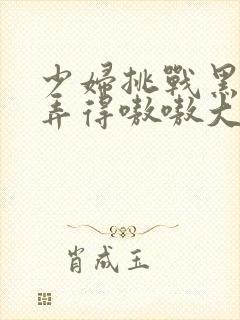 少婦挑戰黑
弄得嗷嗷大
肖成玉